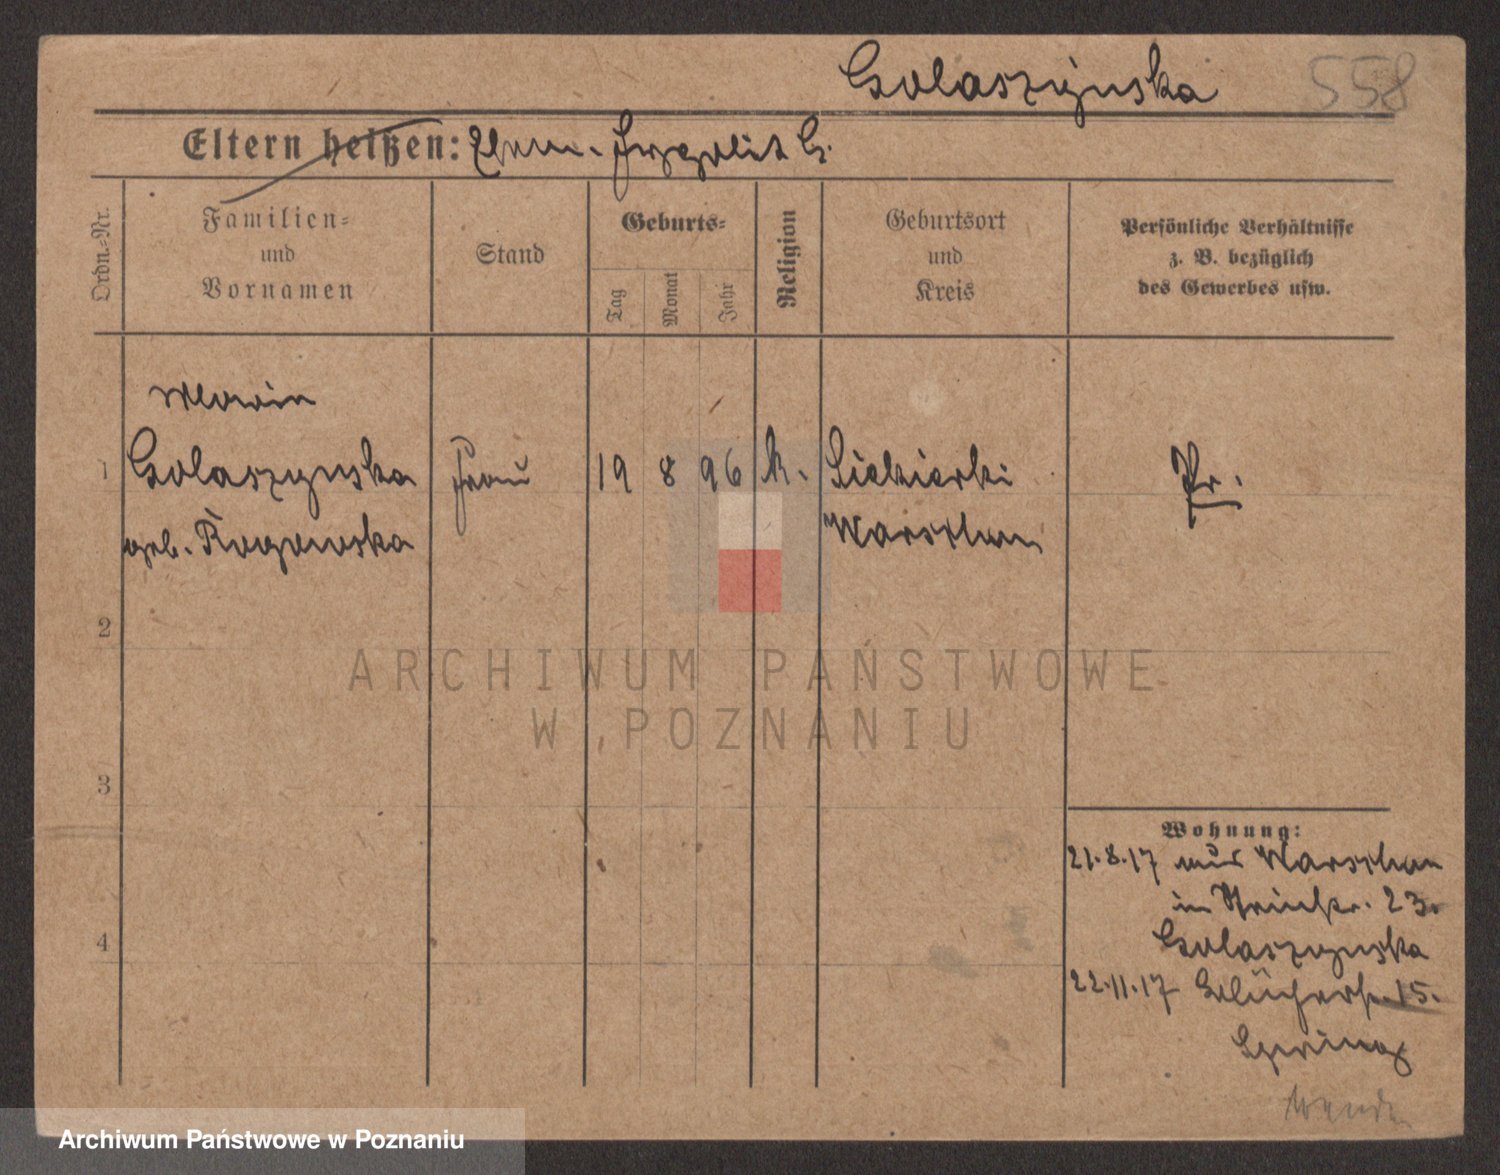 Golaszynska 558
Eltern heißen: Ehem. Hypolit G.
Ordn.-Nr.
Familien-
und
Vornamen
Stand
Geburts-
Tag
Monat
Jahr
Religion
Geburtsort
und
Kreis
Persönliche Verhältnisse
z. B. bezüglich
des Gewerbes usw.
Maria
1 Golaszynska Frau 19 8 96 k. Siekierki Pr.
geb. Rogowska Warschau
2
ARCHIWUM PAŃSTWOWE
W POZNANIU
3
Wohnung:
21.8.17 aus Warschau
in 23.
Golaszynska
4
22.11.17 Blücherstr. 15.
Spring
Wenden
Archiwum Państwowe w Poznaniu